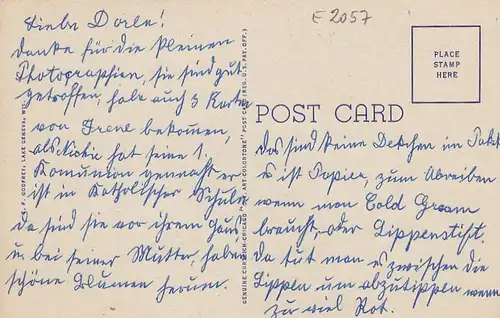 Liebe Dorle!
danke für die kleinen
Photographien, sie sind gut
getroffen, habe auch 3 Karten
von Irene bekommen,
als Nickie hat seine 1.
Komunion gemacht er
ist in Katholischer Schule,
da sind sie vor ihrem Haus
u. bei seiner Mutter, haben
schöne Blumen herum.
E 2057
PLACE
STAMP
HERE
POST CARD
GENUINE CURTEICH-CHICAGO "C.T. ART-COLORTONE" POST CARD (REG. U. S. PAT. OFF.)
F. GODFREY, LAKE GENEVA, WIS.
Das sind keine Deckchen im Paket
es ist Papier, zum Abreiben
wenn man Cold Cream
braucht, oder Lippenstift.
Da tut man es zwischen die
Lippen um abzutippen wenn
zu viel Rot.